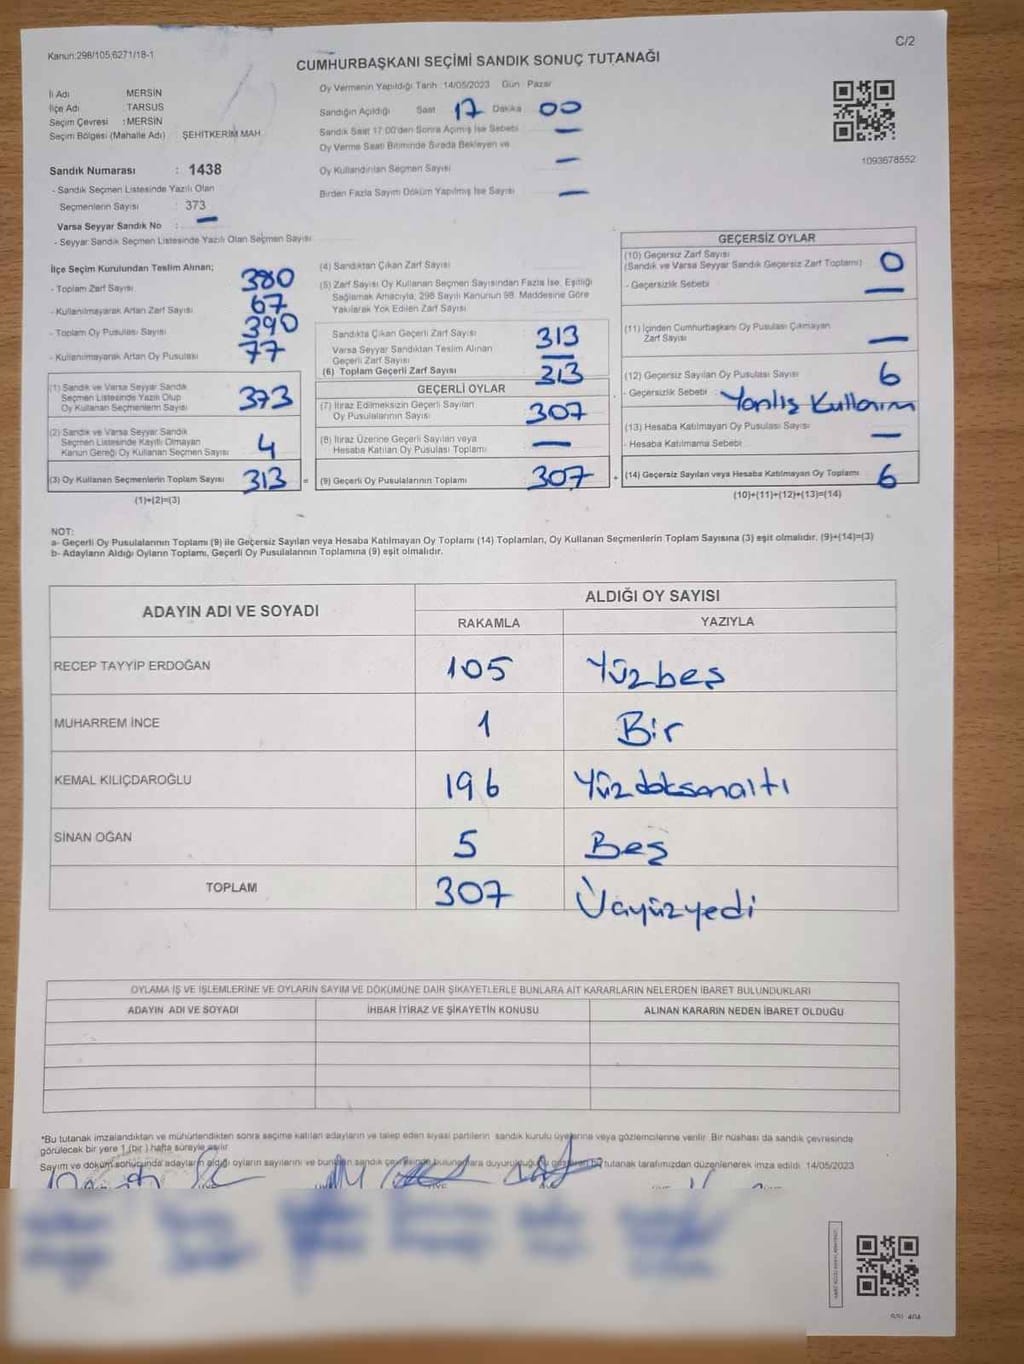 Kanun:298/105,6271/18-1
C/2
CUMHURBAŞKANI SEÇİMİ SANDIK SONUÇ TUTANAĞI
İli Adı MERSİN
İlçe Adı TARSUS
Seçim Çevresi : MERSİN
Seçim Bölgesi (Mahalle Adı) ŞEHİTKERİM MAH.
Oy Vermenin Yapıldığı Tarih :14/05/2023 Gün Pazar
Sandığın Açıldığı Saat 17 Dakika 00
Sandık Saat 17.00'den Sonra Açımış İse Sebebi —
Oy Verme Saati Bitiminde Sırada Bekleyen ve
Oy Kullandırılan Seçmen Sayısı —
Birden Fazla Sayım Döküm Yapılmış İse Sayısı —
1093678552
Sandık Numarası : 1438
- Sandık Seçmen Listesinde Yazılı Olan
Seçmenlerin Sayısı : 373
Varsa Seyyar Sandık No : —
- Seyyar Sandık Seçmen Listesinde Yazılı Olan Seçmen Sayısı
İlçe Seçim Kurulundan Teslim Alınan;
- Toplam Zarf Sayısı 380
- Kullanılmayarak Artan Zarf Sayısı 67
- Toplam Oy Pusulası Sayısı 390
- Kullanılmayarak Artan Oy Pusulası 77
(1) Sandık ve Varsa Seyyar Sandık
Seçmen Listesinde Yazılı Olup
Oy Kullanan Seçmenlerin Sayısı 373
(2) Sandık ve Varsa Seyyar Sandık
Seçmen Listesinde Kayıtlı Olmayan
Kanun Gereği Oy Kullanan Seçmen Sayısı 4
(3) Oy Kullanan Seçmenlerin Toplam Sayısı 313 =
(1)+(2)=(3)
(4) Sandıktan Çıkan Zarf Sayısı
(5) Zarf Sayısı Oy Kullanan Seçmen Sayısından Fazla İse, Eşitliği
Sağlamak Amacıyla, 298 Sayılı Kanunun 98. Maddesine Göre
Yakılarak Yok Edilen Zarf Sayısı
Sandıkta Çıkan Geçerli Zarf Sayısı 313
Varsa Seyyar Sandıktan Teslim Alınan
Geçerli Zarf Sayısı —
(6) Toplam Geçerli Zarf Sayısı 313
GEÇERLİ OYLAR
(7) İtiraz Edilmeksizin Geçerli Sayılan
Oy Pusulalarının Sayısı 307
(8) İtiraz Üzerine Geçerli Sayılan veya
Hesaba Katılan Oy Pusulası Toplamı —
(9) Geçerli Oy Pusulalarının Toplamı 307 +
GEÇERSİZ OYLAR
(10) Geçersiz Zarf Sayısı
(Sandık ve Varsa Seyyar Sandık Geçersiz Zarf Toplamı) 0
- Geçersizlik Sebebi —
(11) İçinden Cumhurbaşkanı Oy Pusulası Çıkmayan
Zarf Sayısı —
(12) Geçersiz Sayılan Oy Pusulası Sayısı 6
- Geçersizlik Sebebi Yanlış Kullanım
(13) Hesaba Katılmayan Oy Pusulası Sayısı —
- Hesaba Katılmama Sebebi
(14) Geçersiz Sayılan veya Hesaba Katılmayan Oy Toplamı 6
(10)+(11)+(12)+(13)=(14)
NOT:
a- Geçerli Oy Pusulalarının Toplamı (9) ile Geçersiz Sayılan veya Hesaba Katılmayan Oy Toplamı (14) Toplamları, Oy Kullanan Seçmenlerin Toplam Sayısına (3) eşit olmalıdır. (9)+(14)=(3)
b- Adayların Aldığı Oyların Toplamı, Geçerli Oy Pusulalarının Toplamına (9) eşit olmalıdır.
ADAYIN ADI VE SOYADI ALDIĞI OY SAYISI
RAKAMLA YAZIYLA
RECEP TAYYİP ERDOĞAN 105 Yüzbeş
MUHARREM İNCE 1 Bir
KEMAL KILIÇDAROĞLU 196 Yüzdoksanaltı
SİNAN OĞAN 5 Beş
TOPLAM 307 Üçyüzyedi
OYLAMA İŞ VE İŞLEMLERİNE VE OYLARIN SAYIM VE DÖKÜMÜNE DAİR ŞİKAYETLERLE BUNLARA AİT KARARLARIN NELERDEN İBARET BULUNDUKLARI
ADAYIN ADI VE SOYADI İHBAR İTİRAZ VE ŞİKAYETİN KONUSU ALINAN KARARIN NEDEN İBARET OLDUĞU
*Bu tutanak imzalandıktan ve mühürlendikten sonra seçime katılan adayların ve talep eden siyasi partilerin sandık kurulu üyelerine veya gözlemcilerine verilir. Bir nüshası da sandık çevresinde
görülecek bir yere 1 (bir) hafta süreyle asılır
Sayım ve döküm sonucunda adayların aldığı oyların sayılarını ve bu tutanak tarafımızdan düzenlenerek imza edildi. 14/05/2023